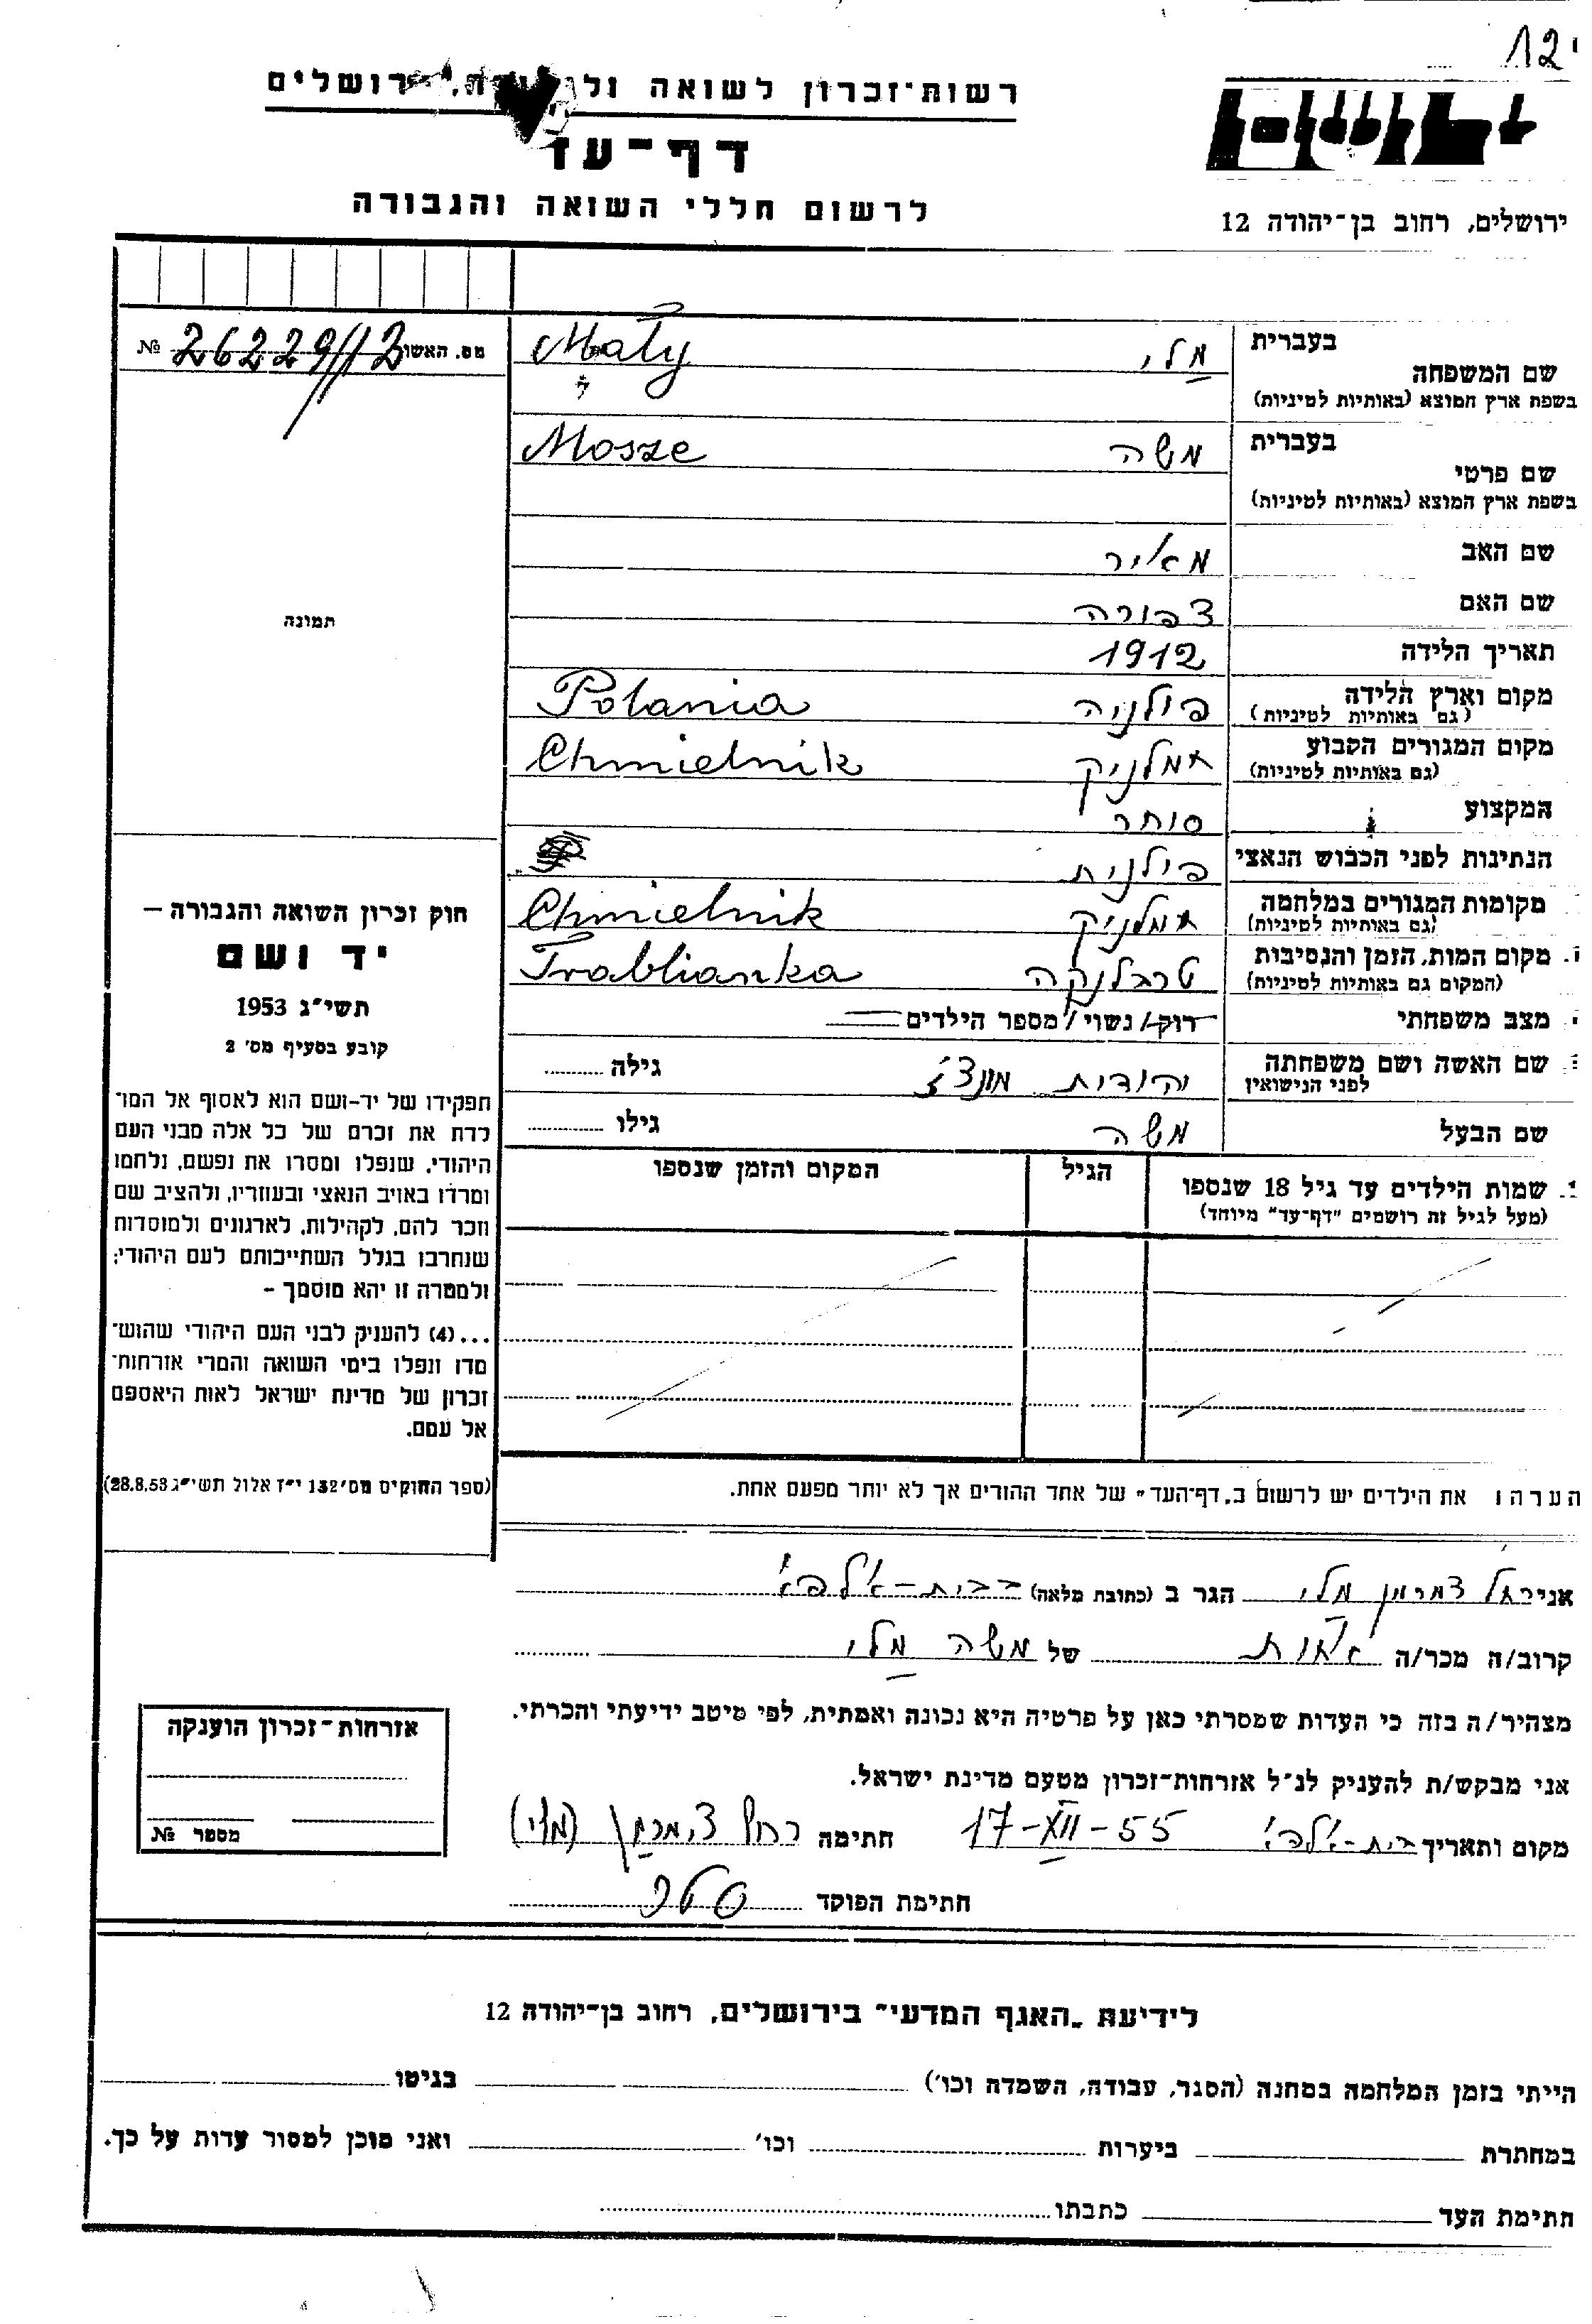 12
רשות־זכרון לשואה
ירושלים
דף־עד
לרשום חללי השואה והגבורה
ירושלים, רחוב בן־יהודה 12
בעברית מלי Mały
שם המשפחה
בשפת ארץ המוצא (באותיות לטיניות)
מס. האשו № 26229/12
בעברית משה Mosze
שם פרטי
בשפת ארץ המוצא (באותיות לטיניות)
שם האב מאיר
שם האם צפורה
תמונה
תאריך הלידה 1912
מקום וארץ הלידה פולניה Polania
(גם באותיות לטיניות)
מקום המגורים הקבוע חמלניק Chmielnik
(גם באותיות לטיניות)
המקצוע סוחר
הנתינות לפני הכבוש הנאצי פולנית
מקומות המגורים במלחמה חמלניק Chmielnik
(גם באותיות לטיניות)
מקום המות, הזמן והנסיבות טרבלנקה Trablianka
(המקום גם באותיות לטיניות)
מצב משפחתי רוק/ נשוי/ מספר הילדים
שם האשה ושם משפחתה יהודית גילה
לפני הנישואין
שם הבעל משה גילו
שמות הילדים עד גיל 18 שנספו הגיל המקום והזמן שנספו
(מעל לגיל זה רושמים "דף־עד" מיוחד)
חוק זכרון השואה והגבורה –
יד ושם
תשי"ג 1953
קובע בסעיף מס' 2
תפקידו של יד-ושם הוא לאסוף אל המו־
לדת את זכרם של כל אלה מבני העם
היהודי, שנפלו ומסרו את נפשם, נלחמו
ומרדו באויב הנאצי ובעוזריו, ולהציב שם
וזכר להם, לקהילות, לארגונים ולמוסדות
שנחרבו בגלל השתייכותם לעם היהודי;
ולמטרה זו יהא מוסמך –
...(4) להעניק לבני העם היהודי שהוש־
מדו ונפלו בימי השואה והמרי אזרחות־
זכרון של מדינת ישראל לאות היאספם
אל עמם.
(ספר החוקים מס' 132 י"ז אלול תשי"ג 28.8.53)
הערה: את הילדים יש לרשום ב„דף־העד" של אחד ההורים אך לא יותר מפעם אחת.
אני רחל צמרמן מלי הגר ב (כתובת מלאה) בבית-אלפא
קרוב/ה מכר/ה אחות של משה מלי
מצהיר/ה בזה כי העדות שמסרתי כאן על פרטיה היא נכונה ואמתית, לפי מיטב ידיעתי והכרתי.
אני מבקש/ת להעניק לנ"ל אזרחות־זכרון מטעם מדינת ישראל.
מקום ותאריך בית-אלפא 17-XII-55 חתימה רחל צימרמן (מלי)
חתימת הפוקד
אזרחות־זכרון הוענקה
מספר №
לידיעת „האגף המדעי" בירושלים, רחוב בן־יהודה 12
הייתי בזמן המלחמה במחנה (הסגר, עבודה, השמדה וכו') בגיטו
במחתרת ביערות וכו' ואני מוכן למסור עדות על כך.
חתימת העד כתבתו